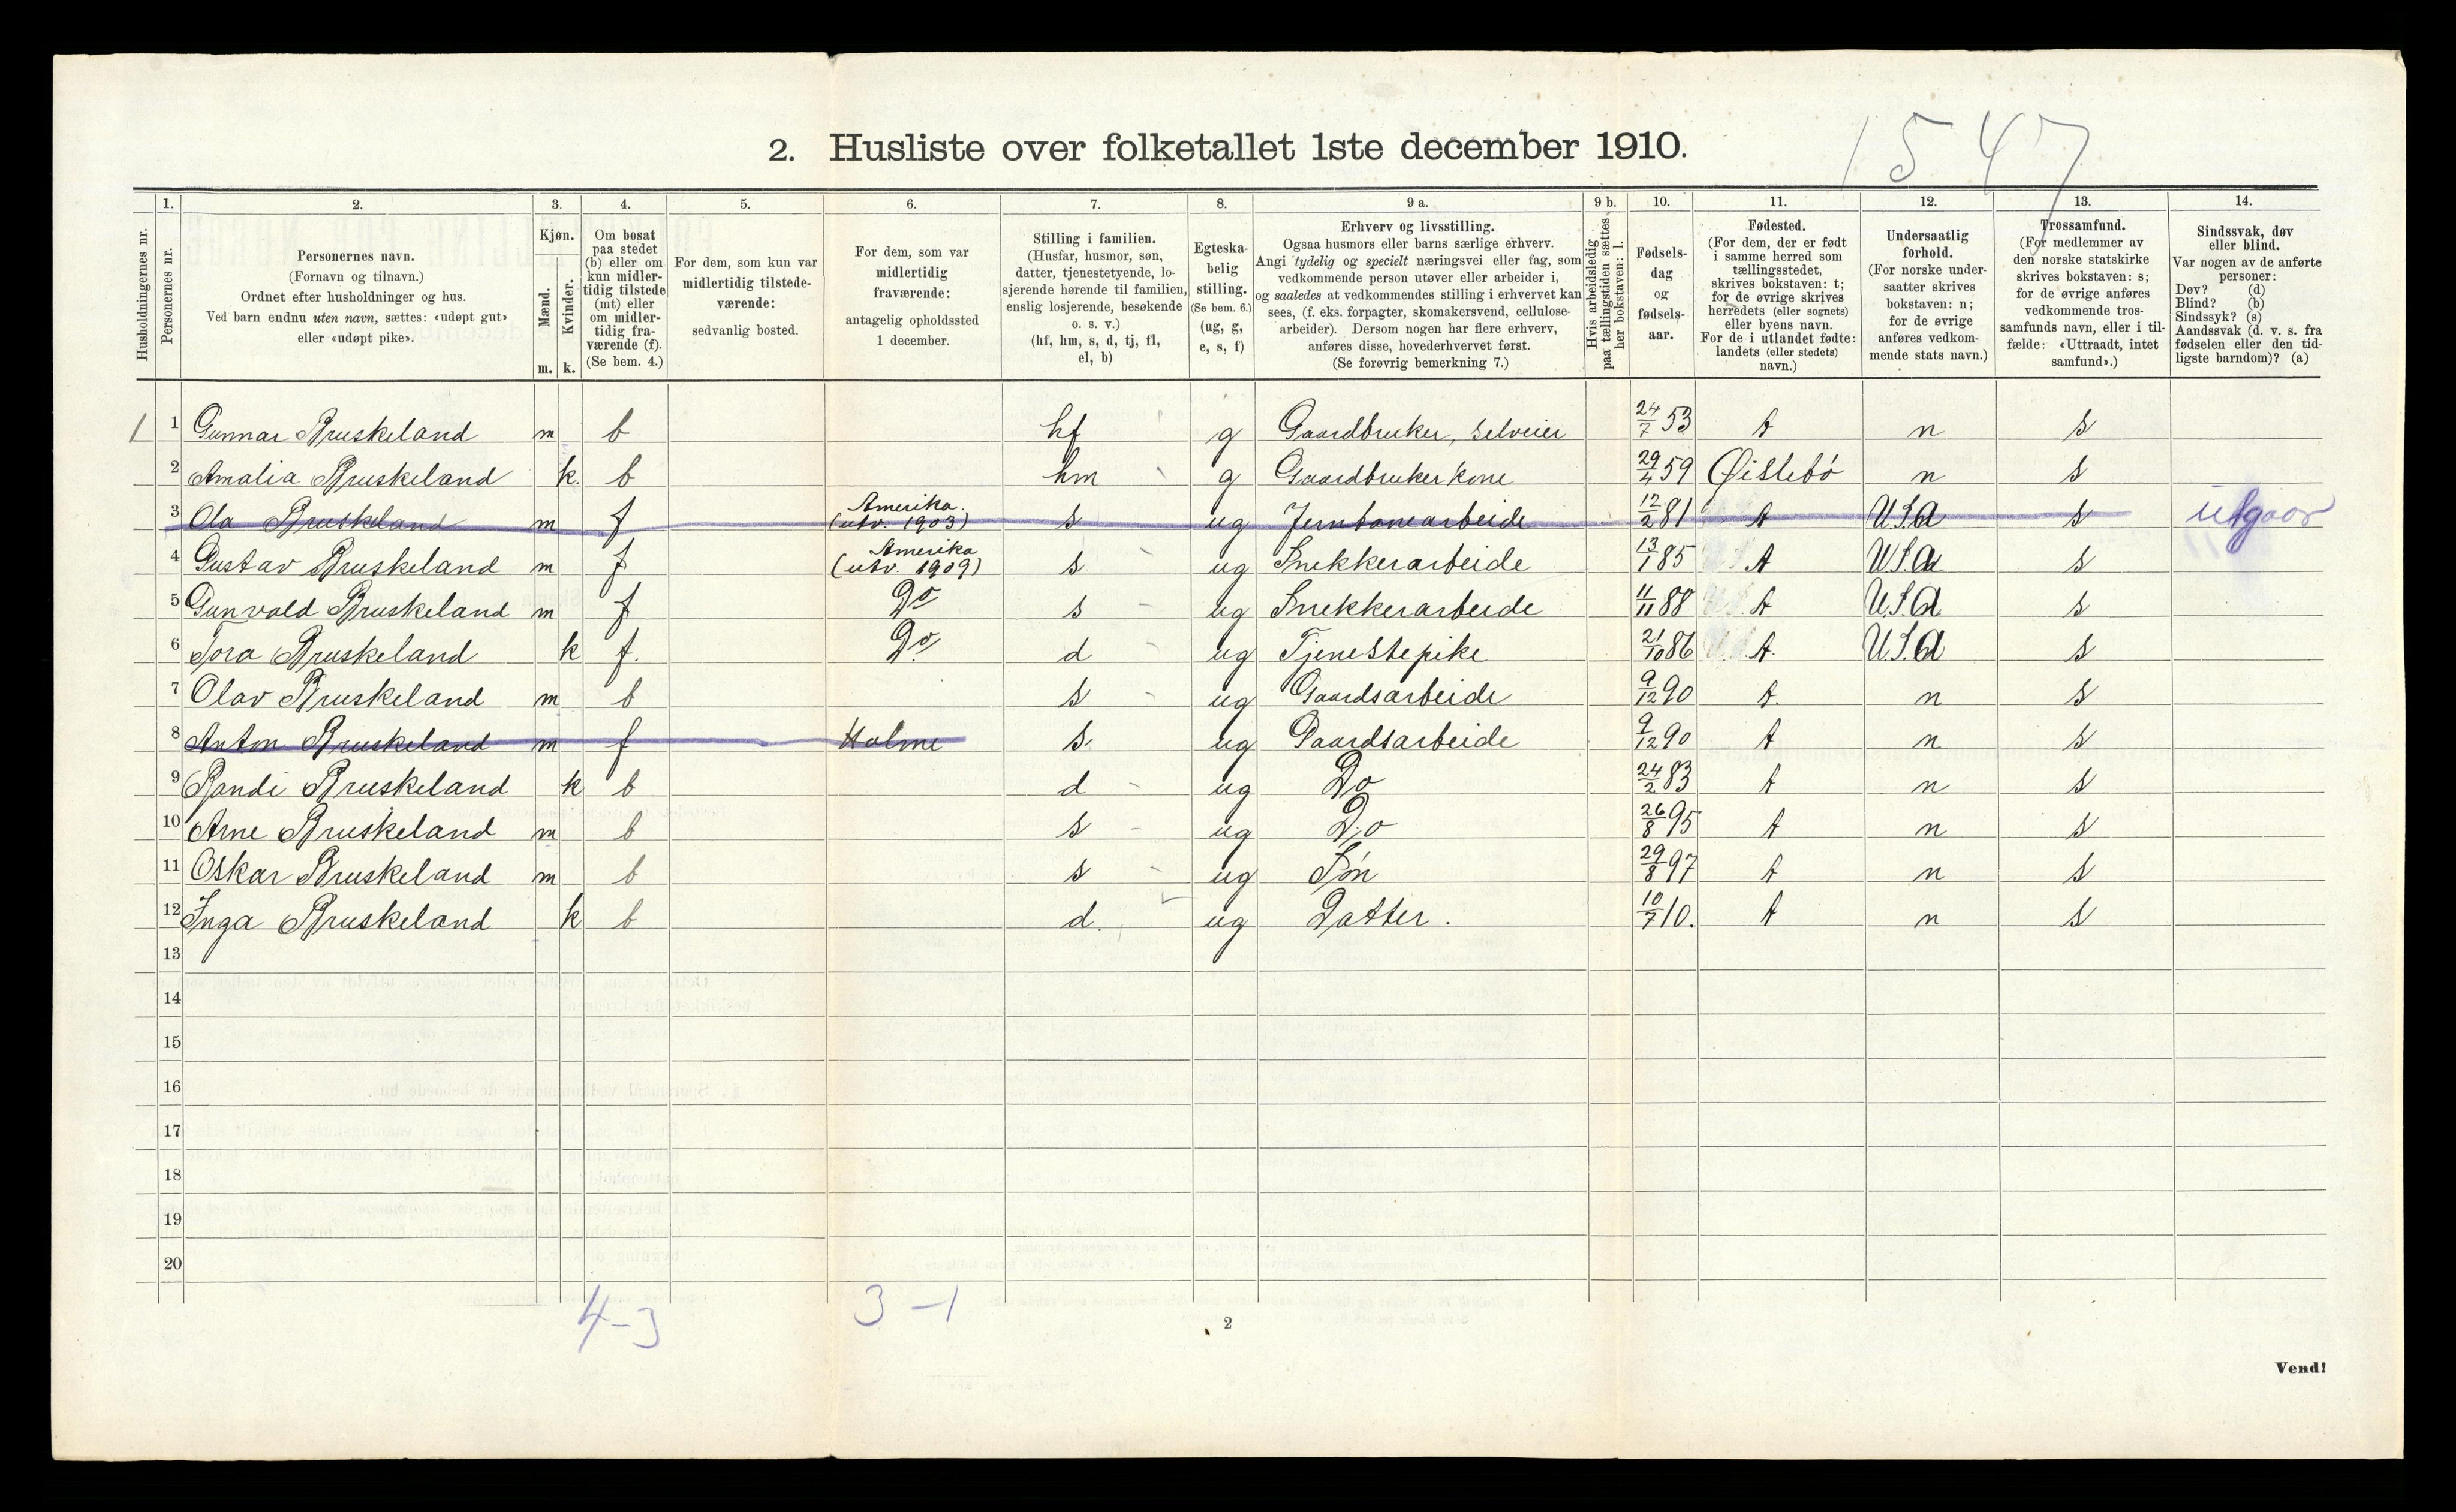 1547
2. Husliste over folketallet 1ste december 1910.
Husholdningernes nr.
1.
Personernes nr.
2.
Personernes navn.
(Fornavn og tilnavn.)
Ordnet efter husholdninger og hus.
Ved barn endnu uten navn, sættes: «udøpt gut»
eller «udøpt pike».
3.
Kjøn.
Mænd.
Kvinder.
m. k.
4.
Om bosat
paa stedet
(b) eller om
kun midler-
tidig tilstede
(mt) eller
om midler-
tidig fra-
værende (f).
(Se bem. 4.)
5.
For dem, som kun var
midlertidig tilstede-
værende:
sedvanlig bosted.
6.
For dem, som var
midlertidig
fraværende:
antagelig opholdssted
1 december.
7.
Stilling i familien.
(Husfar, husmor, søn,
datter, tjenestetyende, lo-
sjerende hørende til familien,
enslig losjerende, besøkende
o. s. v.)
(hf, hm, s, d, tj, fl,
el, b)
8.
Egteska-
belig
stilling.
(Se bem. 6.)
(ug, g,
e, s, f)
9 a.
Erhverv og livsstilling.
Ogsaa husmors eller barns særlige erhverv.
Angi tydelig og specielt næringsvei eller fag, som
vedkommende person utøver eller arbeider i,
og saaledes at vedkommendes stilling i erhvervet kan
sees, (f. eks. forpagter, skomakersvend, cellulose-
arbeider). Dersom nogen har flere erhverv,
anføres disse, hovederhvervet først.
(Se forøvrig bemerkning 7.)
9 b.
Hvis arbeidsledig
paa tællingstiden sættes
her bokstaven: l.
10.
Fødsels-
dag
og
fødsels-
aar.
11.
Fødested.
(For dem, der er født
i samme herred som
tællingsstedet,
skrives bokstaven: t;
for de øvrige skrives
herredets (eller sognets)
eller byens navn.
For de i utlandet fødte:
landets (eller stedets)
navn.)
12.
Undersaatlig
forhold.
(For norske under-
saatter skrives
bokstaven: n;
for de øvrige
anføres vedkom-
mende stats navn.)
13.
Trossamfund.
(For medlemmer av
den norske statskirke
skrives bokstaven: s;
for de øvrige anføres
vedkommende tros-
samfunds navn, eller i til-
fælde: «Uttraadt, intet
samfund».)
14.
Sindssvak, døv
eller blind.
Var nogen av de anførte
personer:
Døv? (d)
Blind? (b)
Sindssyk? (s)
Aandssvak (d. v. s. fra
fødselen eller den tid-
ligste barndom)? (a)
1 1 Gunnar Bruskeland m b hf g Gaardbruker, selveier 24/7 53 t n s
2 Amalia Bruskeland k. b hm g Gaardbruker kone 29/4 59 Øislebø n s
3 Ola Bruskeland m f Amerika. (utv. 1903) s ug Jernbanearbeide 12/2 81 t U.S.A s utgaar
4 Gustav Bruskeland m f Amerika (utv. 1909) s ug Snekkerarbeide 13/1 85 t U.S.A s
5 Gunvald Bruskeland m f Do s ug Snekkerarbeide 11/11 88 t U.S.A s
6 Tora Bruskeland k f. Do d ug Tjenestepike 21/10 86 t. U.S.A s
7 Olav Bruskeland m b s ug Gaardsarbeide 9/12 90 t. n s
8 Anton Bruskeland m f Holme s. ug Gaardsarbeide 9/12 90 t n s
9 Randi Bruskeland k b d ug Do 24/2 83 t n s
10 Arne Bruskeland m b s ug Do 26/8 95 t n s
11 Oskar Bruskeland m b s ug Søn 29/8 97 t n s
12 Inga Bruskeland k b d. ug Datter. 10/7 10. t n s
13
14
15
16
17
18
19
20
4-3
3-1
2
Vend!